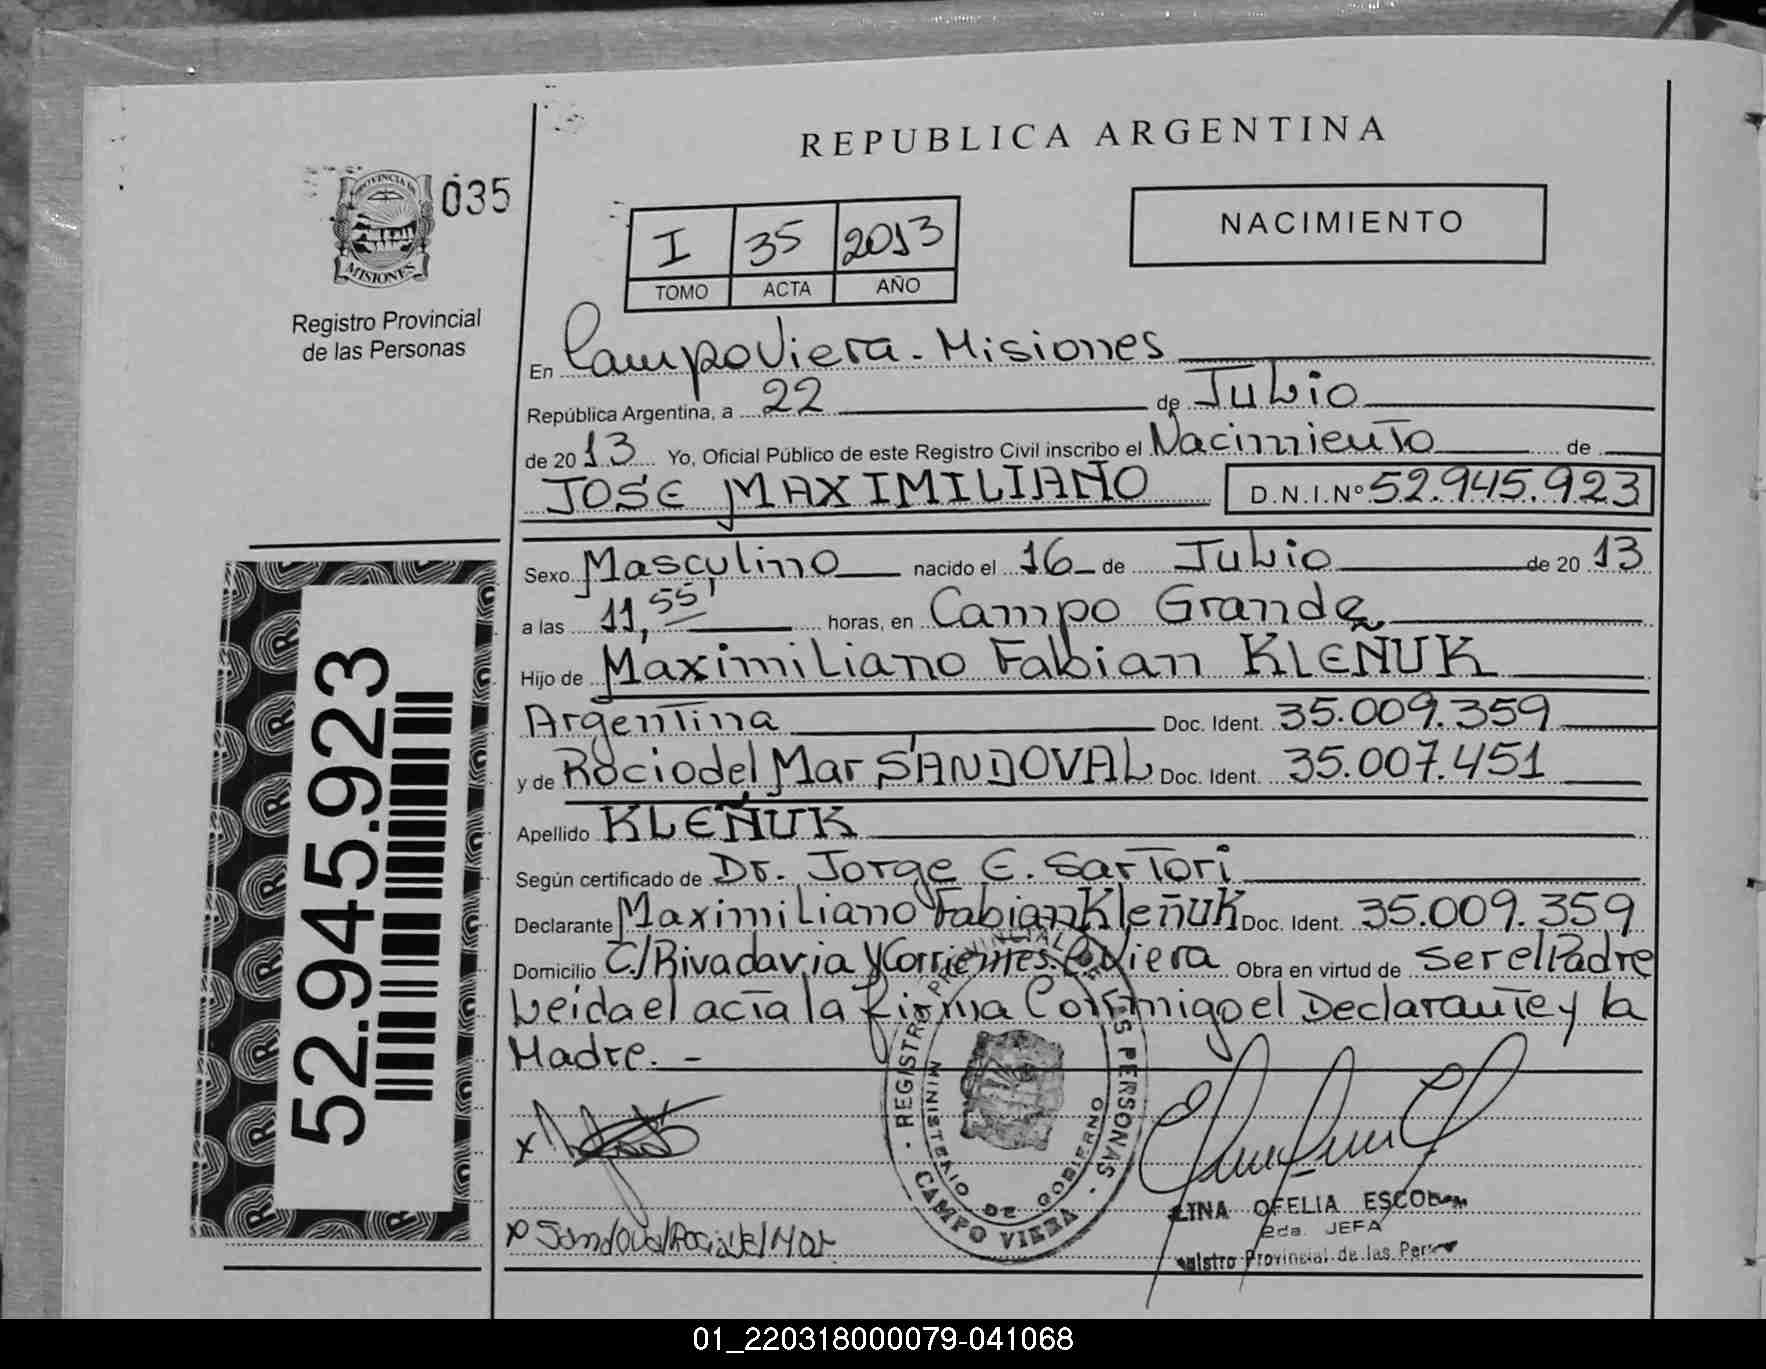 REPUBLICA ARGENTINA
PROVINCIA DE
MISIONES
035
Registro Provincial
de las Personas
I 35 2013
TOMO ACTA AÑO
NACIMIENTO
En Campo Viera - Misiones
República Argentina, a 22 de Julio
de 2013 Yo, Oficial Público de este Registro Civil inscribo el Nacimiento de
JOSE MAXIMILIANO D.N.I.Nº 52.945.923
Sexo Masculino nacido el 16 de Julio de 2013
a las 11,55' horas, en Campo Grande
Hijo de Maximiliano Fabian KLEÑUK
Argentina Doc. Ident. 35.009.359
y de Rocio del Mar SANDOVAL Doc. Ident. 35.007.451
Apellido KLEÑUK
Según certificado de Dr. Jorge E. Sartori
Declarante Maximiliano Fabian Kleñuk Doc. Ident. 35.009.359
Domicilio C/ Rivadavia y Corrientes. C. Viera Obra en virtud de Ser el Padre
Leida el acta la firma Conmigo el Declarante y la
Madre. -
52.945.923
REGISTRO PROVINCIAL DE LAS PERSONAS
MINISTERIO DE GOBIERNO
CAMPO VIERA
x
x Sandoval Rocio del Mar
LINA OFELIA ESCOBAR
2da. JEFA
Registro Provincial de las Pers
01_220318000079-041068